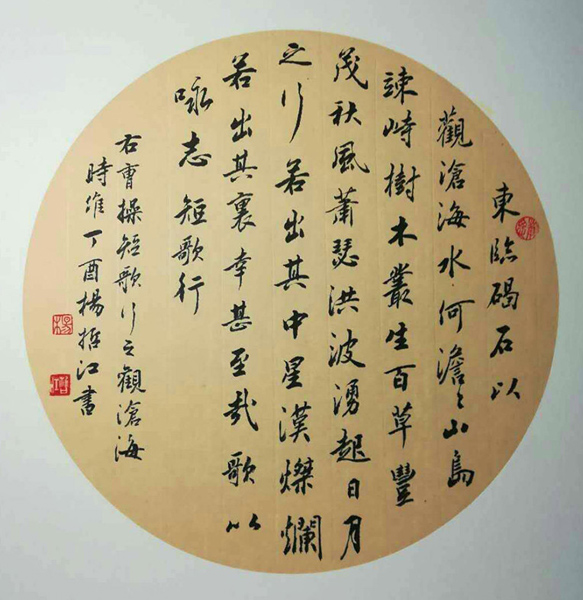 東臨碣石以
觀滄海水何澹々山島
竦峙樹木叢生百草豐
茂秋風蕭瑟洪波湧起日月
之行若出其中星漢燦爛
若出其裏幸甚至哉歌以
咏志短歌行
右曹操短歌行之觀滄海
時維丁酉楊哲江書